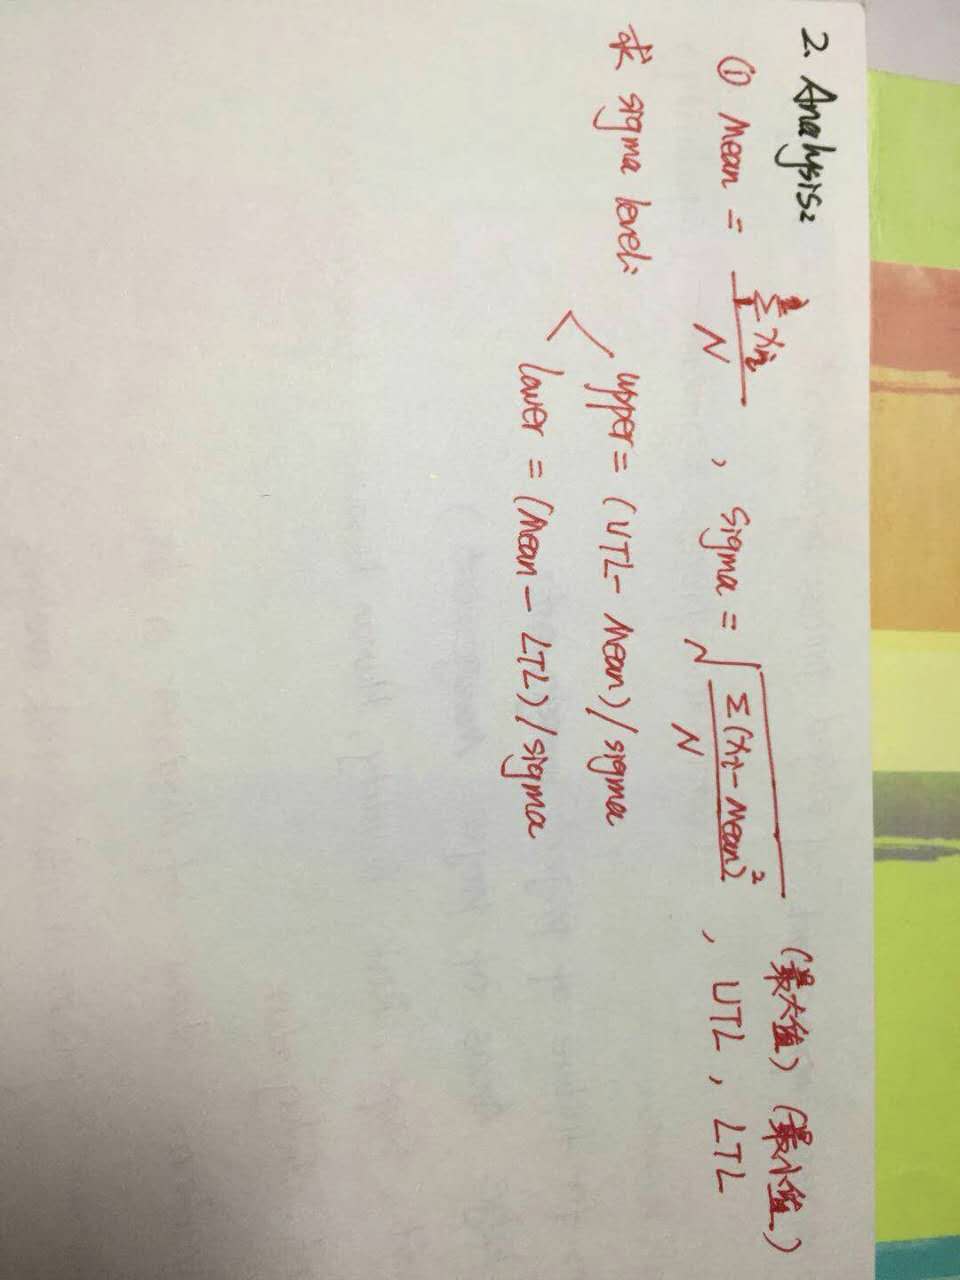 2. Analysis:
(最大值) (最小值)
① Mean = Σxi / N , Sigma = √(Σ(xi - Mean)² / N) , UTL , LTL
求 sigma level:
upper = (UTL - Mean) / sigma
lower = (Mean - LTL) / sigma